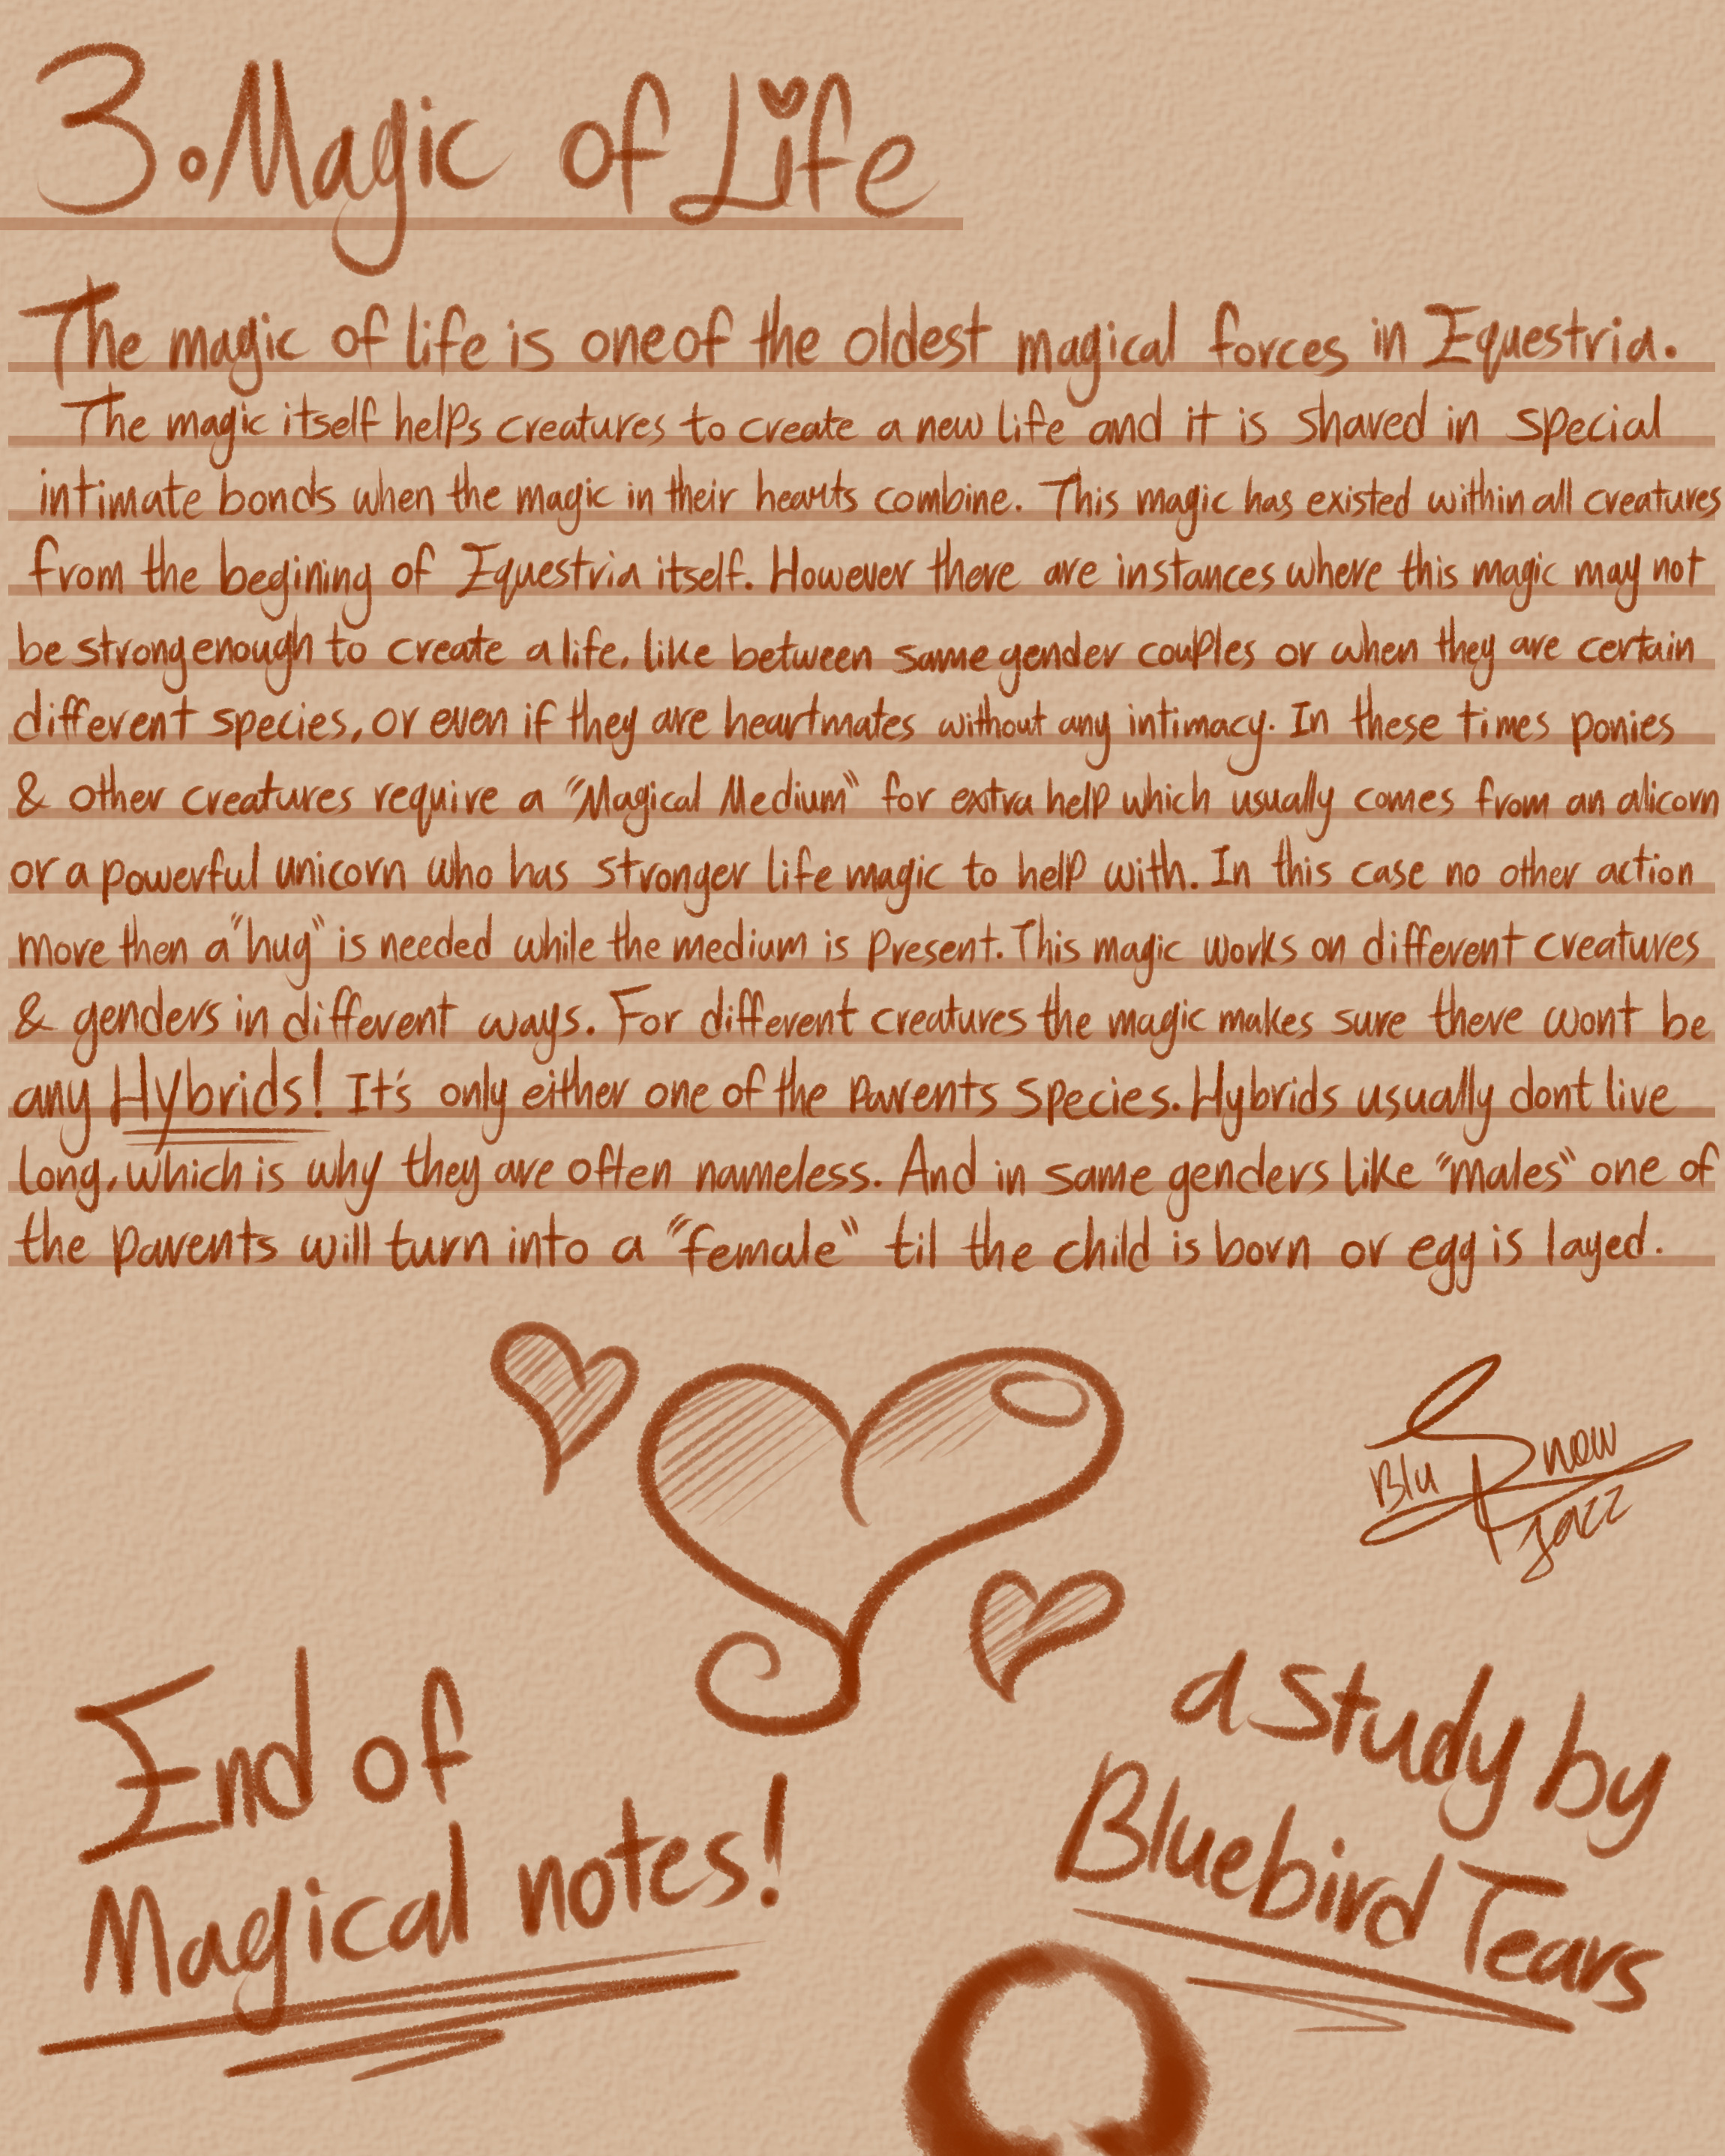 3. Magic of Life
The magic of life is one of the oldest magical forces in Equestria.
The magic itself helps creatures to create a new life and it is shared in special
intimate bonds when the magic in their hearts combine. This magic has existed within all creatures
from the begining of Equestria itself. However there are instances where this magic may not
be strong enough to create a life, like between same gender couples or when they are certain
different species, or even if they are heartmates without any intimacy. In these times ponies
& other creatures require a "Magical Medium" for extra help which usually comes from an alicorn
or a powerful unicorn who has stronger life magic to help with. In this case no other action
more then a "hug" is needed while the medium is present. This magic works on different creatures
& genders in different ways. For different creatures the magic makes sure there wont be
any Hybrids! It's only either one of the parents species. Hybrids usually dont live
long, which is why they are often nameless. And in same genders like "males" one of
the parents will turn into a "female" til the child is born or egg is layed.
Blu Snow
Jazz
End of
Magical notes!
a study by
Bluebird Tears